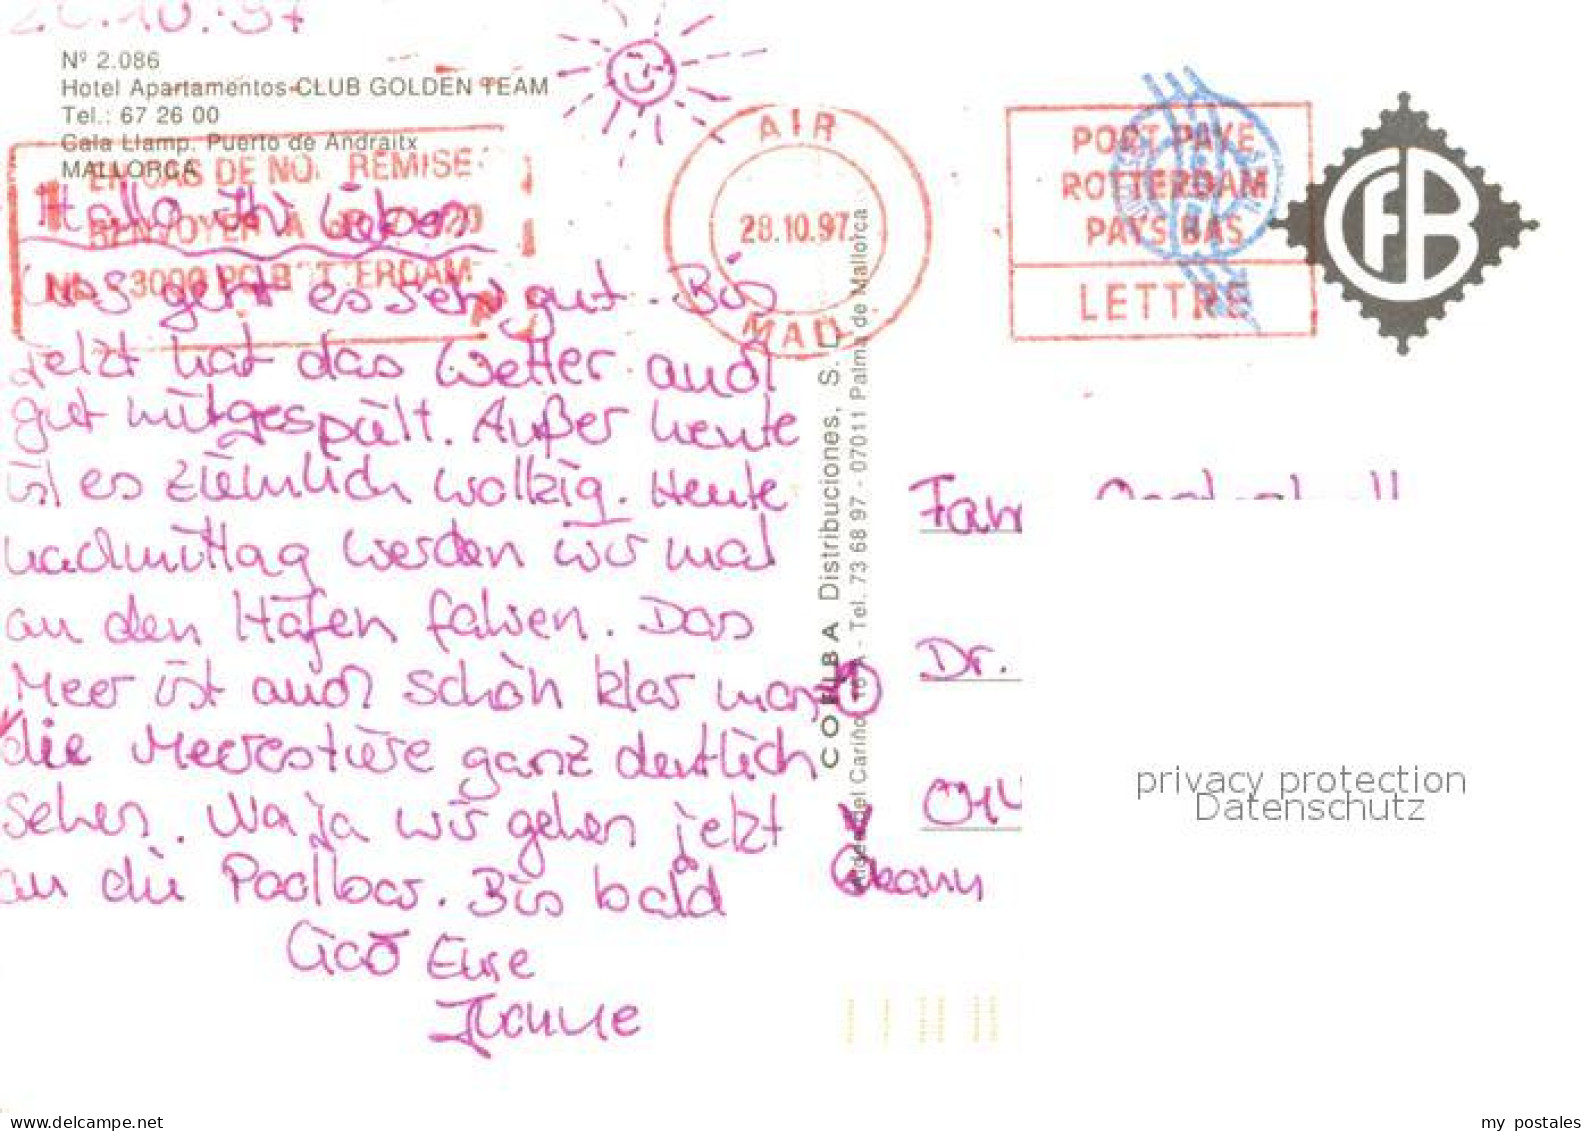 Nº 2.086
Hotel Apartamentos CLUB GOLDEN TEAM
Tel.: 67 26 00
Cala Llamp. Puerto de Andraitx
MALLORCA
EN CAS DE NON REMISE
RENVOYER A
3000 ROTTERDAM
AIR
28.10.97
MAIL
PORT PAYE
ROTTERDAM
PAYS BAS
LETTRE
CFB
Hallo Ihr Lieben
Uns geht es sehr gut. Bis
jetzt hat das Wetter auch
gut mitgespielt. Außer heute
ist es ziemlich wolkig. Heute
nachmittag werden wir mal
an den Hafen fahren. Das
Meer ist auch schön klar
die Meerestiere ganz deutlich
sehen. Na ja wir gehen jetzt
an die Poolbar. Bis bald
Ciao Eure
COMBA Distribuciones, S.L.
Tel. 73 68 97 - 07011 Palma de Mallorca
Fam
Dr.
privacy protection
Datenschutz
my postales